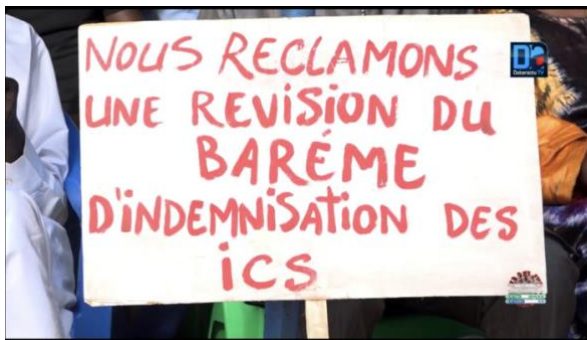 NOUS RECLAMONS
UNE REVISION DU
BARÉME
D'INDEMNISATION DES
ICS
D
Dakaractu TV